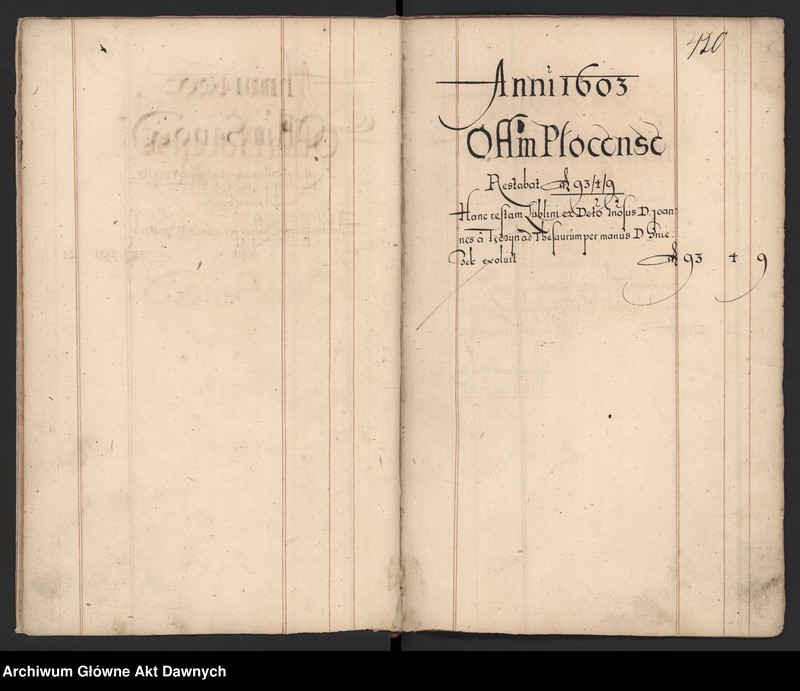 420
Anni 1603
Offm Płocense
Restabat fl 93/4/9
Hanc restam Lublini ex Deto Gnosus D. Joan
nes à ad Thesaurum per manus D. Snie
exoluit fl 93 4 9
Archiwum Główne Akt Dawnych